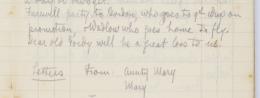 Farewell party to Gordon, who goes to 9th Div on
promotion, & Wadlow who goes home to fly.
Dear old Porby will be a great loss to us.
Letters From: Aunty Mary
Mary